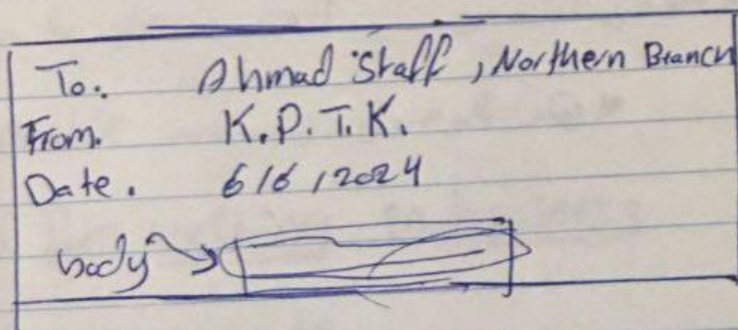 To. Ahmad Staff, Northern Branch
From. K.P.T.K.
Date. 6/6/2024
body